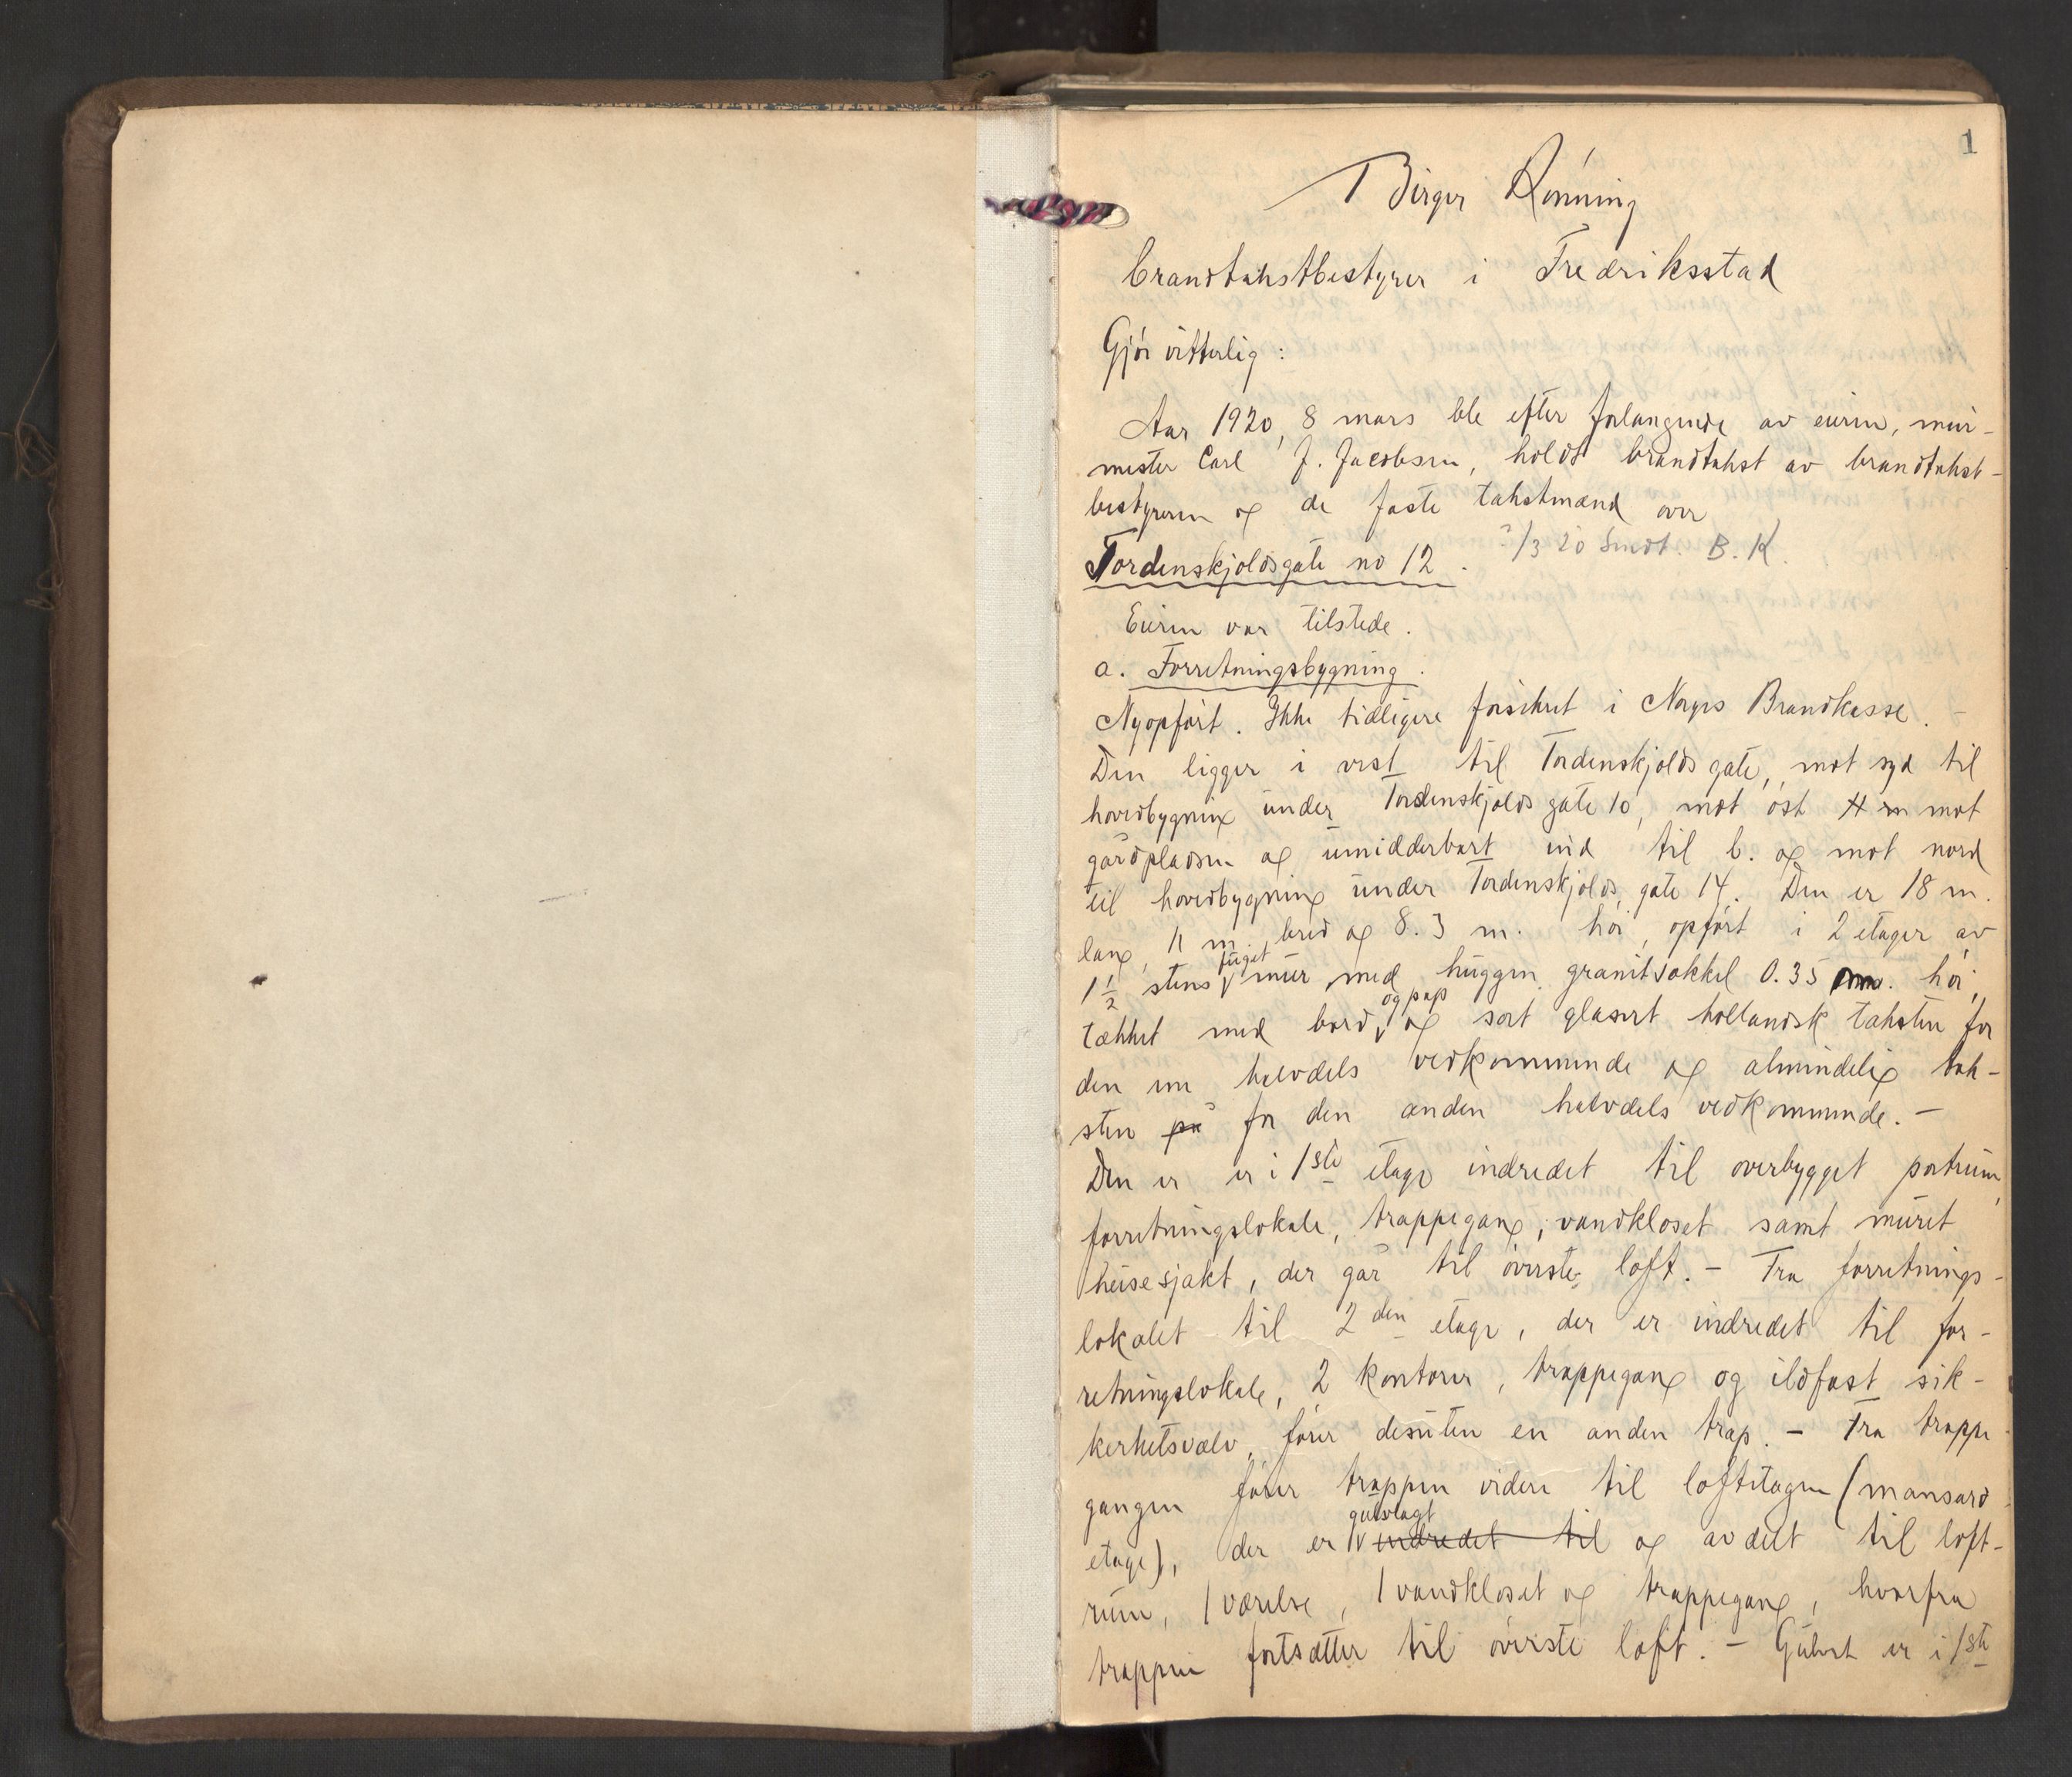 1
Birger Rønning
brandtakstbestyrer i Fredriksstad
Gjør vitterlig:
Aar 1920, 8 mars ble efter forlangende av eieren, mur-
mester Carl J. Jacobsen, holdt brandtakst av brandtakst-
bestyreren og de faste takstmænd over
Tordenskjoldsgate no 12. /3 20 Sendt. B. K.
Eieren var tilstede.
a. Forretningsbygning.
Nyopført. Ikke tidligere forsikret i Norges Brandkasse. –
Den ligger i vest til Tordenskjolds gate, mot syd til
hovedbygning under Tordenskjolds gate 10, mot øst mot
gårdpladsen og umidderbart ind til b. og mot nord
til hovedbygning under Tordenskjolds gate 14. Den er 18 m.
lang, 11 m. bred og 8.3 m. høi, opført i 2 etager av
1 1/2 stens fuget mur med huggen granitsokkel 0.35 m. høi,
tækket med bord, og pap og sort glasert hollandsk taksten for
den ene halvdels vedkommende og almindelig tak-
sten på for den anden halvdels vedkommende. –
Den er er i 1ste etage indredet til overbygget portrum,
forretningslokale, trappegang, vandkloset samt muret
heisesjakt, der går til øverste loft. – Fra forretnings-
lokalet til 2den etage, der er indredet til for-
retningslokale, 2 kontorer, trappegang og ildfast sik-
kerhetsvælv, fører desuten en anden trap. – Fra trappe-
gangen fører trappen videre til loftetagen (mansard-
etage), der er gulvlagt indredet til og avdelt til loft-
rum, 1 værelse, 1 vandkloset og trappegang, hvorfra
trappen fortsætter til øverste loft. – Gulvet er i 1ste